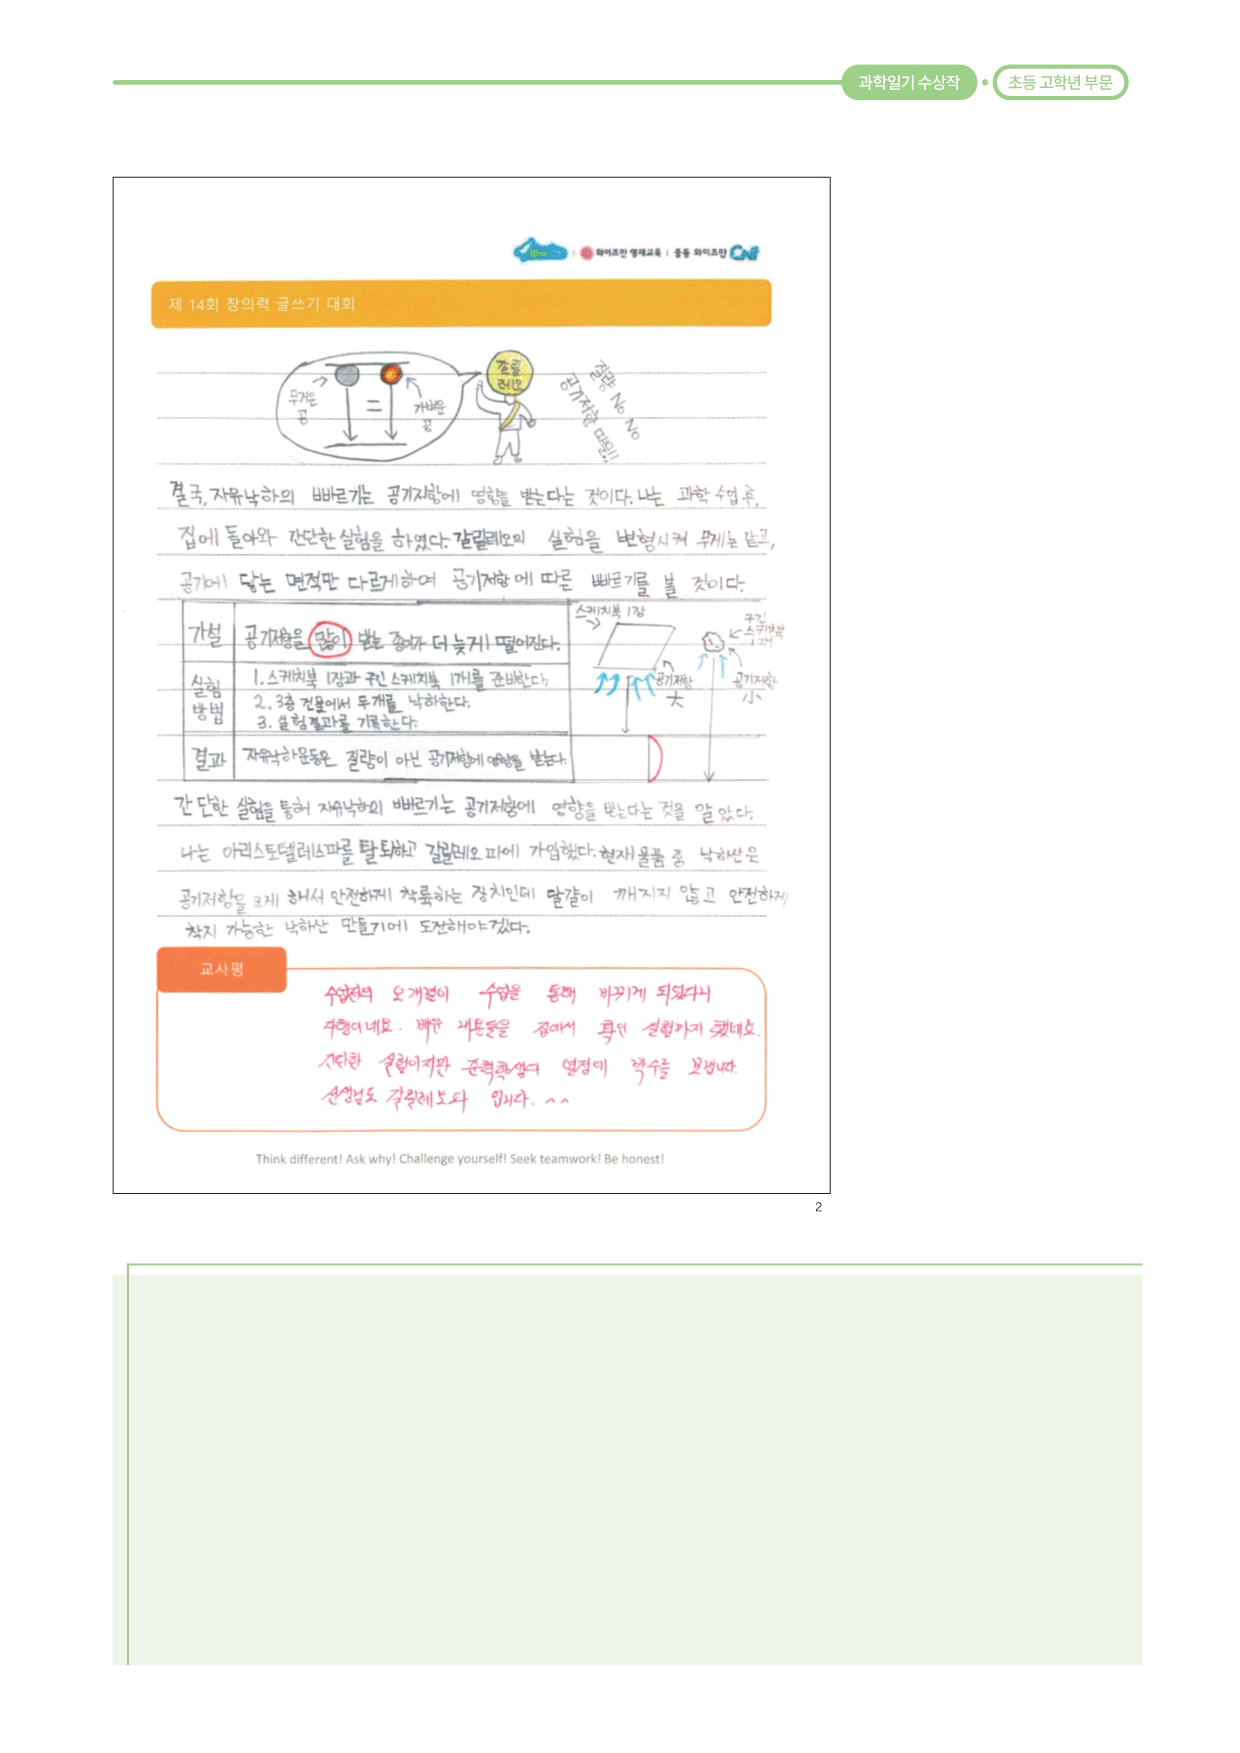 과학일기 수상작 • 초등 고학년 부문
와이즈만 영재교육 | 중등 와이즈만 CNI
제 14회 창의력 글쓰기 대회
무거운 공
=
가벼운 공
갈릴레오
질량 No No
공기저항 때문!!
결국, 자유낙하의 빠르기는 공기저항에 영향을 받는다는 것이다. 나는 과학 수업 후,
집에 돌아와 간단한 실험을 하였다. 갈릴레오의 실험을 변형시켜 무게는 같고,
공기에 닿는 면적만 다르게하여 공기저항에 따른 빠르기를 볼 것이다.
가설 공기저항을 많이 받는 종이가 더 늦게 떨어진다.
실험 방법
1. 스케치북 1장과 구긴 스케치북 1개를 준비한다.
2. 3층 건물에서 두개를 낙하한다.
3. 실험결과를 기록한다.
결과 자유낙하운동은 질량이 아닌 공기저항에 영향을 받는다.
스케치북 1장
공기저항 大
구긴 스케치북 1개
공기저항 小
간단한 실험을 통해 자유낙하의 빠르기는 공기저항에 영향을 받는다는 것을 알았다.
나는 아리스토텔레스파를 탈퇴하고 갈릴레오파에 가입했다. 현재 물품 중 낙하산은
공기저항을 크게 해서 안전하게 착륙하는 장치인데 달걀이 깨지지 않고 안전하게
착지 가능한 낙하산 만들기에 도전해야겠다.
교사평
수업전의 오개념이 수업을 통해 바뀌게 되었다니
다행이네요. 배운 내용들을 집에서 확인 실험까지 했네요.
간단한 실험이지만 준혁학생의 열정에 박수를 보냅니다.
선생님도 갈릴레오파 입니다. ^^
Think different! Ask why! Challenge yourself! Seek teamwork! Be honest!
2